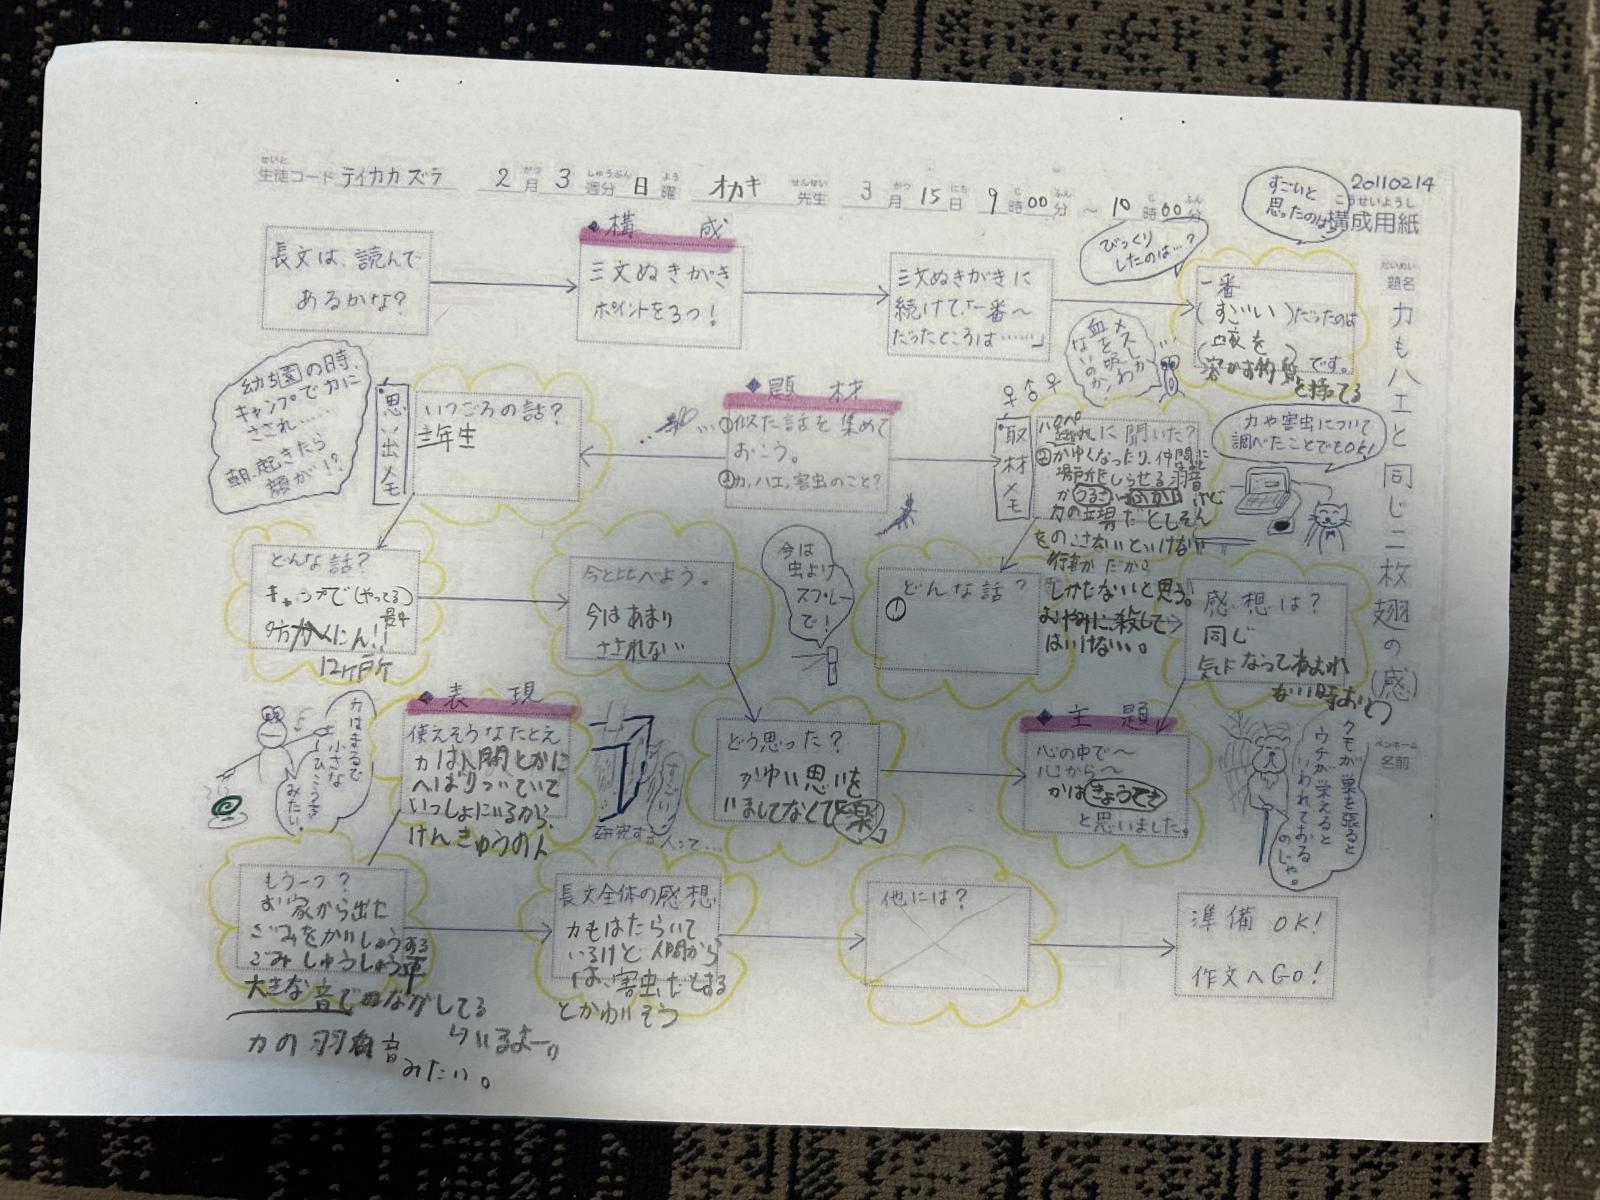 せいと
生徒コード テイカカズラ 2月 3週分 日曜 オカキ 先生 3月15日 9時00分 ～ 10時00分
20110214
こうせいようし
構成用紙
だいめい
題名
カもハエと同じ二枚翅の(感)
ペンネーム
名前
長文は、読んで
あるかな?
◆構 成
三文ぬきがき
ポイントを3つ!
三文ぬきがきに
続けて、「一番～
だったところは……」
びっくり
したのは…?
すごいと
思ったのは
一番
(すごい)だったのは
(血液を
溶かす物質)です。
を持ってる
メスしか
血を吸わ
ないのか!
幼ち園の時、
キャンプでカに
さされ……
朝、起きたら
顔が!?
思い出メモ
いつごろの話?
三年生
◆題 材
①似た話を集めて
おこう。
②カ、ハエ、害虫のこと?
♀♂♀
取材メモ
パパ
に聞いた?
②かゆくなったり、仲間に
場所をしらせる羽音
が うるさい けど
カの立場だとしそん
をのこさないといけない
行動だから
「しかたないと思う。
はいけない。
カや害虫について
調べたことでもOK!
どんな話?
キャンプで(やってる)
最中
12ヶ所
今と比べよう。
今はあまり
さされない
今は
虫よけ
スプレー
で!
どんな話?
①
感想は?
同じ
気になってねむれ
ない時
カはまるで
小さな
ひこうき
みたい。
◆表 現
使えそうなたとえ
カは人間とかに
へばりついていて
いっしょにいるから、
けんきゅうの人
すごい
研究する人って…
どう思った?
かゆい思いを
しなくて「楽」
◆主 題
心の中で～
心から～
かは きょうてき
と思いました。
クモが巣を張ると
ウチが栄えると
いわれておる
のじゃ。
もう一つ?
お家から出た
ごみをかいしゅうする
ごみしゅうしゅう車
大きな音で ながしてる
カの羽音
みたい。
長文全体の感想
カもはたらいて
いるけど人間から
は、害虫だとする
とかわいそう
他には?
準備OK!
作文へGO!